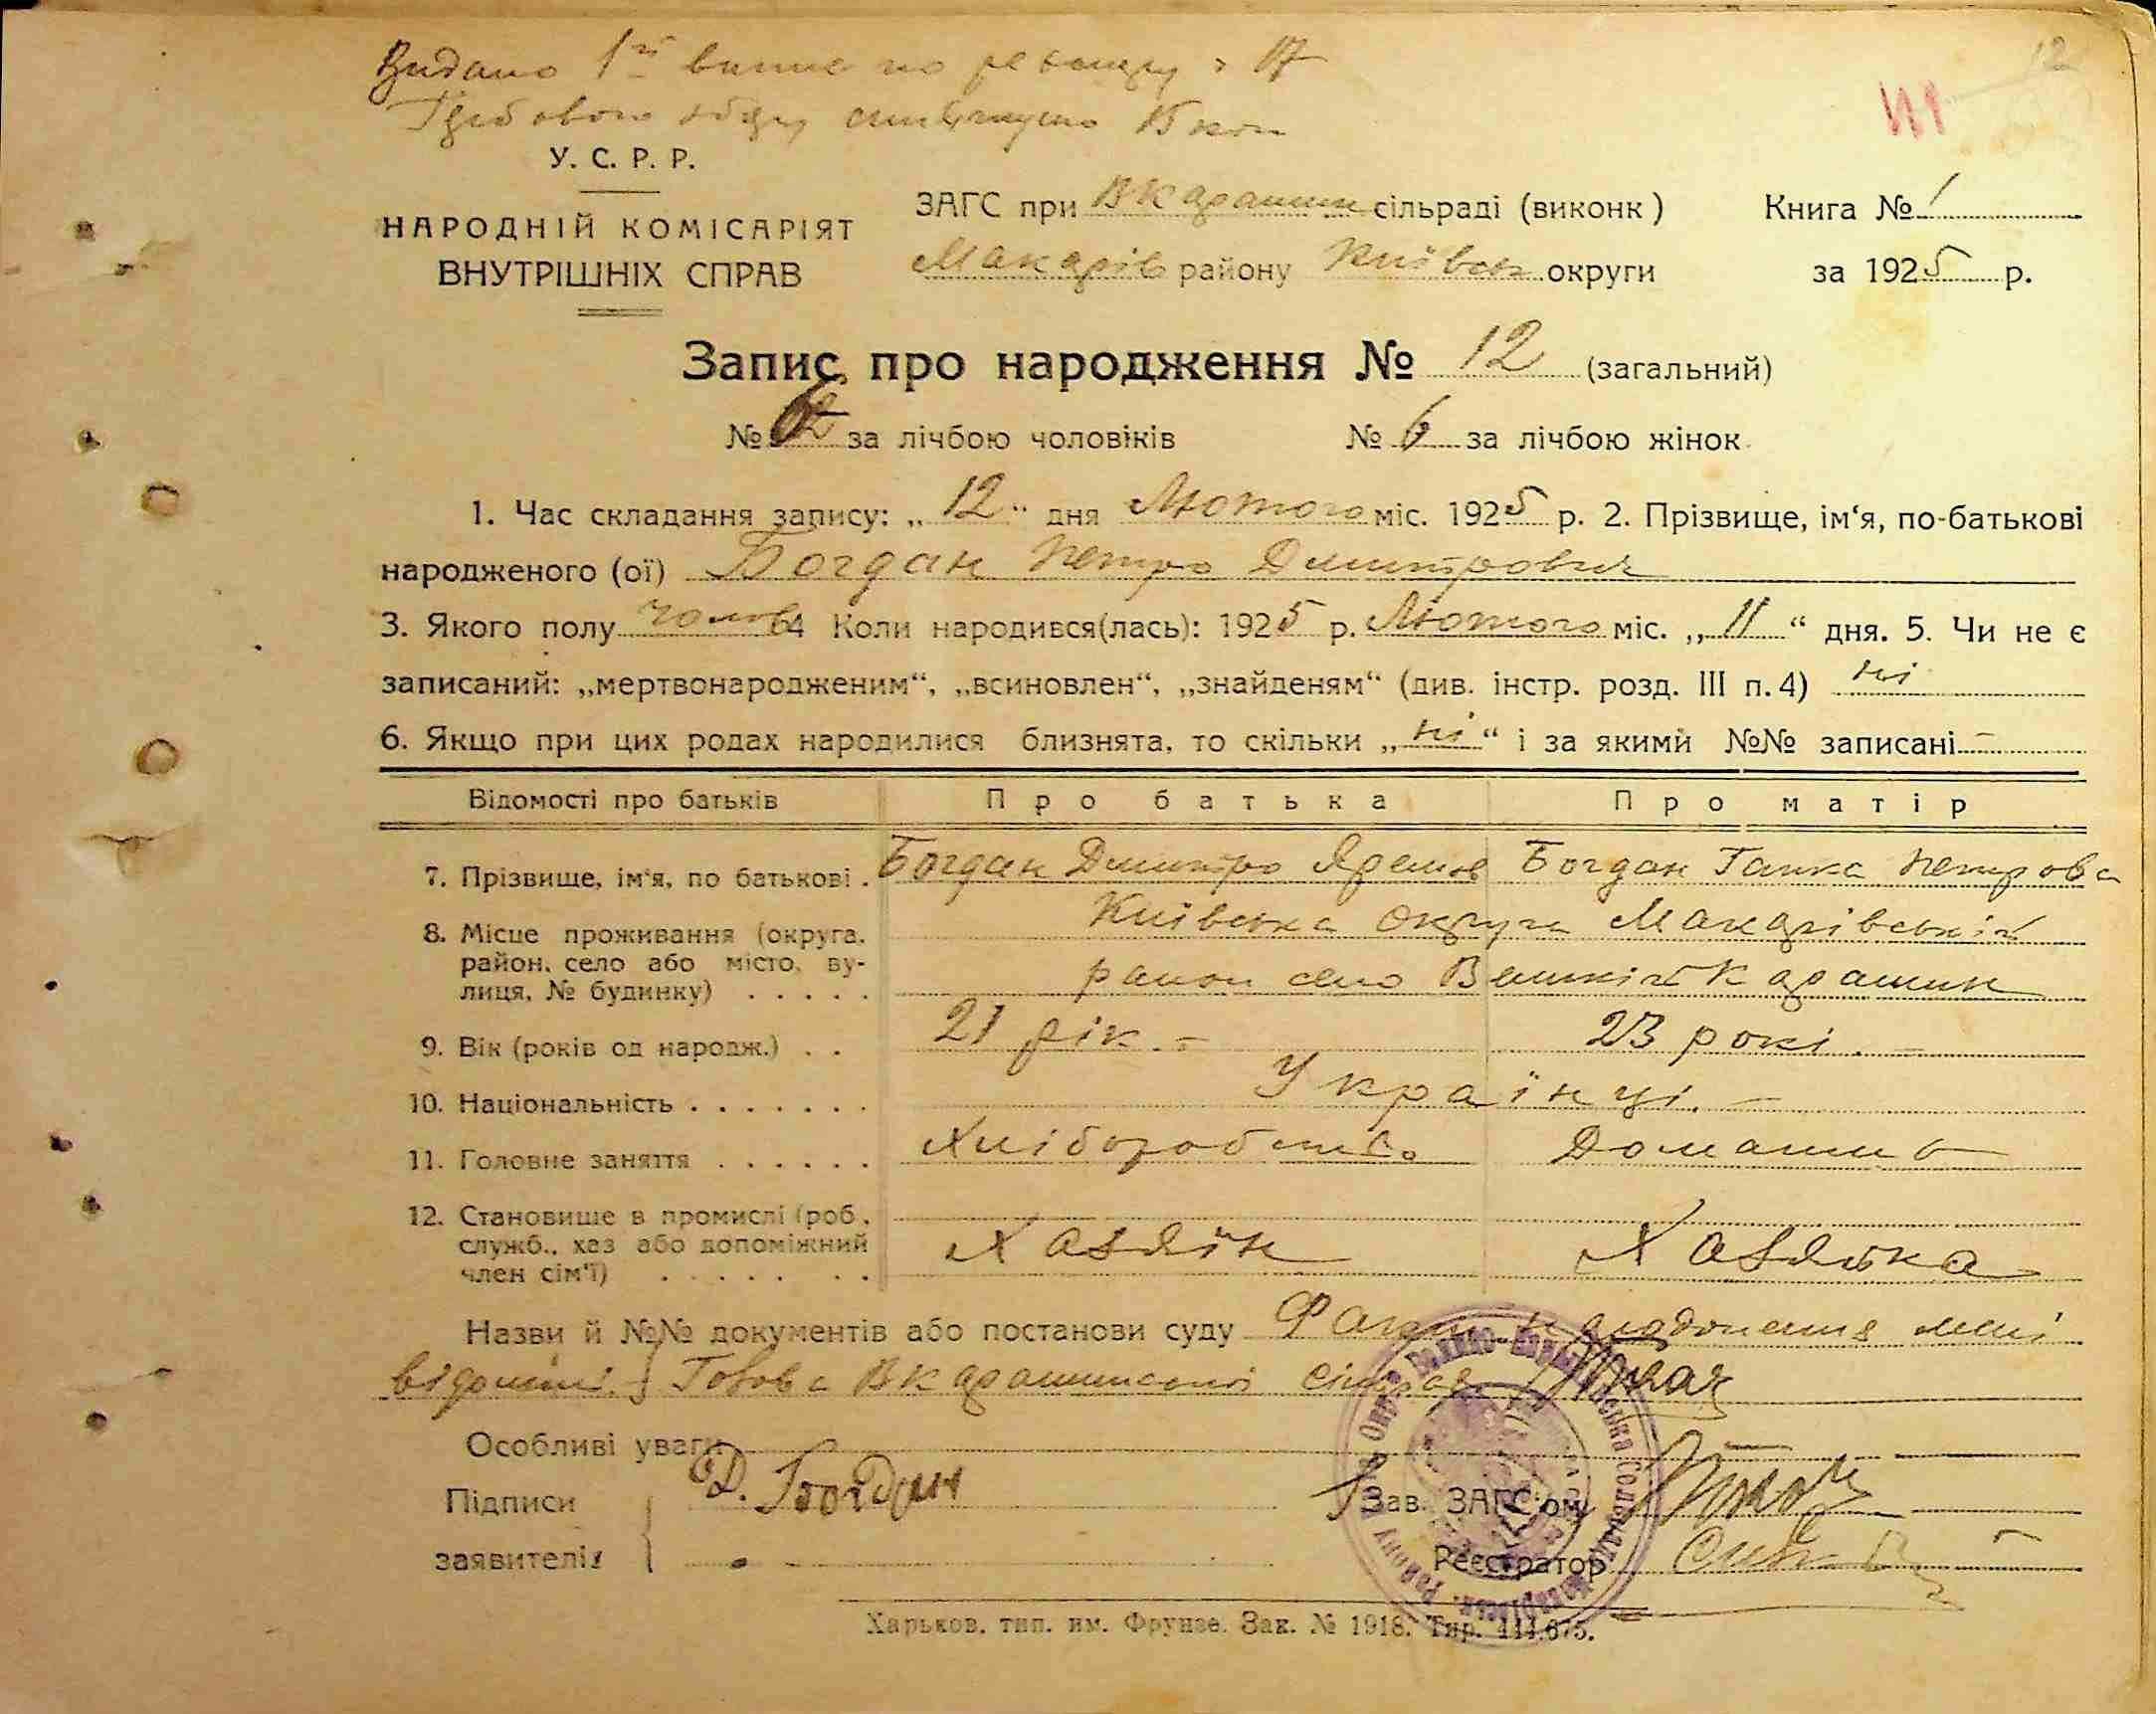 Видано 1й випис по реєстру № 17
Гербового збору стягнуто 15 коп
12
У. С. Р. Р.
НАРОДНІЙ КОМІСАРІЯТ
ВНУТРІШНІХ СПРАВ
ЗАГС при ВКарашин сільраді (виконк)
Макарів району Київськ округи
Книга № 1
за 1925 р.
Запис про народження № 12 (загальний)
№ за лічбою чоловіків № 6 за лічбою жінок
1. Час складання запису: „ 12 “ дня Лютого міс. 1925 р. 2. Прізвище, ім‘я, по-батькові
народженого (ої) Богдан Петро Дмитрович
3. Якого полу чолов 4 Коли народився(лась): 1925 р. Лютого міс. „ 11 “ дня. 5. Чи не є
записаний: „мертвонародженим“, „всиновлен“, „знайденям“ (див. інстр. розд. III п. 4) ні
6. Якщо при цих родах народилися близнята, то скільки „ ні “ і за якими №№ записані –
Відомості про батьків Про батька Про матір
7. Прізвище, ім‘я, по батькові . Богдан Дмитро Яремов Богдан Ганка Петрова
8. Місце проживання (округа, район, село або місто, ву-лиця, № будинку) . . . . . Київська округа Макарівський
район село Великій Карашин
9. Вік (років од народж.) . . 21 рік. – 23 рокі. –
10. Національність . . . . . . . Українці. –
11. Головне заняття . . . . . . Хліборобство Домашнє
12. Становище в промислі (роб.,
служб., хаз або допоміжний
член сім‘ї) . . . . . . . Хазяїн Хазяйка
Назви й №№ документів або постанови суду Факт народження мені
відомий. Голова ВКарашинської сільради
Особливі уваги
Підписи Д. Богдан Зав. ЗАГС‘ом
заявителів Реєстратор
Харьков, тип. им. Фрунзе. Зак. № 1918. Тир. 444.675.